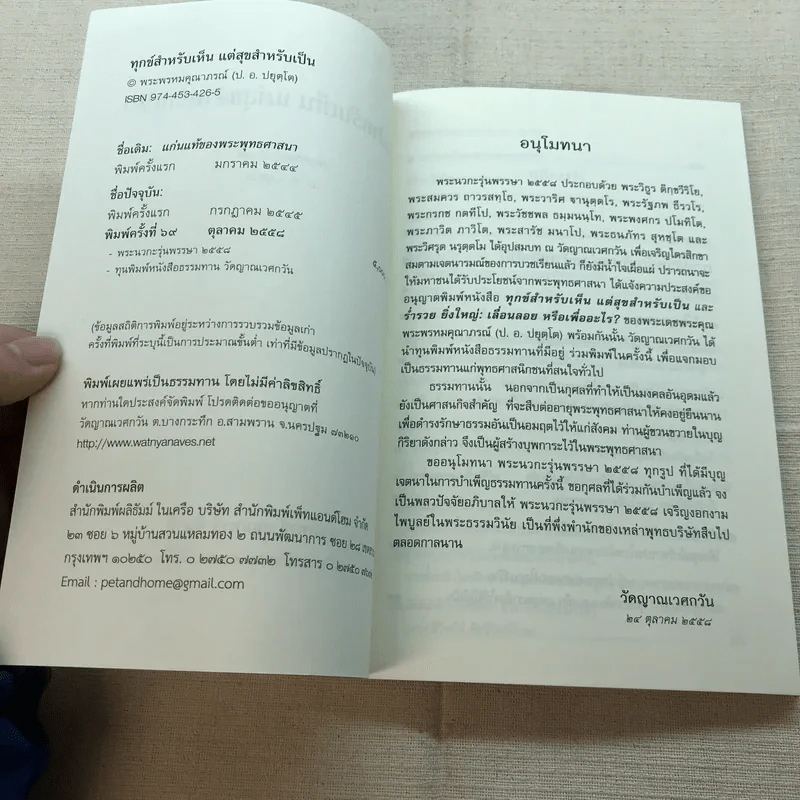 ทุกข์สำหรับเห็น แต่สุขสำหรับเป็น
© พระพรหมคุณาภรณ์ (ป. อ. ปยุตฺโต)
ISBN 974-453-426-5
ชื่อเดิม: แก่นแท้ของพระพุทธศาสนา
พิมพ์ครั้งแรก มกราคม ๒๕๔๔
ชื่อปัจจุบัน:
พิมพ์ครั้งแรก กรกฎาคม ๒๕๔๕
พิมพ์ครั้งที่ ๖๙ ตุลาคม ๒๕๕๘
- พระนวกะรุ่นพรรษา ๒๕๕๘
- ทุนพิมพ์หนังสือธรรมทาน วัดญาณเวศกวัน
(ข้อมูลสถิติการพิมพ์อยู่ระหว่างการรวบรวมข้อมูลเก่า
ครั้งที่พิมพ์ที่ระบุนี้เป็นการประมาณขั้นต่ำ เท่าที่มีข้อมูลปรากฏในปัจจุบัน)
พิมพ์เผยแพร่เป็นธรรมทาน โดยไม่มีค่าลิขสิทธิ์
หากท่านใดประสงค์จัดพิมพ์ โปรดติดต่อขออนุญาตที่
วัดญาณเวศกวัน ต.บางกระทึก อ.สามพราน จ.นครปฐม ๗๓๒๑๐
http://www.watnyanaves.net
ดำเนินการผลิต
สำนักพิมพ์ผลิธัมม์ ในเครือ บริษัท สำนักพิมพ์เพ็ทแอนด์โฮม จำกัด
๒๓ ซอย ๖ หมู่บ้านสวนแหลมทอง ๒ ถนนพัฒนาการ ซอย ๒๘
กรุงเทพฯ ๑๐๒๕๐ โทร. ๐ ๒๗๕๐ ๗๗๓๒ โทรสาร ๐ ๒๗๕๐
Email : petandhome@gmail.com
อนุโมทนา
พระนวกะรุ่นพรรษา ๒๕๕๘ ประกอบด้วย พระวิฑูร ติกฺขวีริโย,
พระสมควร ถาวรสทฺโธ, พระวาริศ ฐานุตฺตโร, พระรัฐภพ ธีรวโร,
พระกรกช กตทีโป, พระวัชชพล ธมฺมนนฺโท, พระพงศกร ปโมทิโต,
พระภาวิต ภาวิโต, พระสารัช มนาโป, พระธนภัทร สุทฺธฺโต และ
พระวิศรุต นรุตฺตโม ได้อุปสมบท ณ วัดญาณเวศกวัน เพื่อเจริญไตรสิกขา
สมตามเจตนารมณ์ของการบวชเรียนแล้ว ก็ยังมีน้ำใจเผื่อแผ่ ปรารถนาจะ
ให้มหาชนได้รับประโยชน์จากพระพุทธศาสนา ได้แจ้งความประสงค์ขอ
อนุญาตพิมพ์หนังสือ ทุกข์สำหรับเห็น แต่สุขสำหรับเป็น และ
ร่ำรวย ยิ่งใหญ่: เลื่อนลอย หรือเพื่ออะไร? ของพระเดชพระคุณ
พระพรหมคุณาภรณ์ (ป. อ. ปยุตฺโต) พร้อมกันนั้น วัดญาณเวศกวัน ได้
นำทุนพิมพ์หนังสือธรรมทานที่มีอยู่ ร่วมพิมพ์ในครั้งนี้ เพื่อแจกมอบ
เป็นธรรมทานแก่พุทธศาสนิกชนที่สนใจทั่วไป
ธรรมทานนั้น นอกจากเป็นกุศลที่ทำให้เป็นมงคลอันอุดมแล้ว
ยังเป็นศาสนกิจสำคัญ ที่จะสืบต่ออายุพระพุทธศาสนาให้คงอยู่ยืนนาน
เพื่อดำรงรักษาธรรมอันเป็นอมฤตไว้ให้แก่สังคม ท่านผู้ขวนขวายในบุญ
กิริยาดังกล่าว จึงเป็นผู้สร้างบุพการะไว้ในพระพุทธศาสนา
ขออนุโมทนา พระนวกะรุ่นพรรษา ๒๕๕๘ ทุกรูป ที่ได้มีบุญ
เจตนาในการบำเพ็ญธรรมทานครั้งนี้ ขอกุศลที่ได้ร่วมกันบำเพ็ญแล้ว จง
เป็นพลวปัจจัยอภิบาลให้ พระนวกะรุ่นพรรษา ๒๕๕๘ เจริญงอกงาม
ไพบูลย์ในพระธรรมวินัย เป็นที่พึ่งพำนักของเหล่าพุทธบริษัทสืบไป
ตลอดกาลนาน
วัดญาณเวศกวัน
๒๔ ตุลาคม ๒๕๕๘